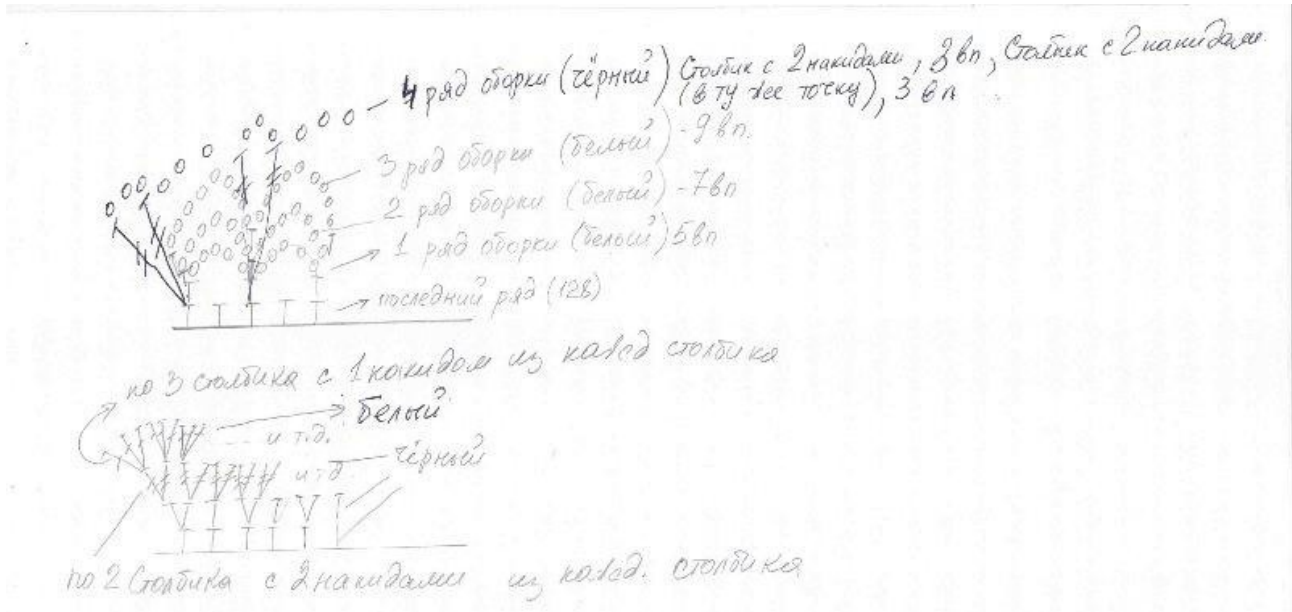 4 ряд оборки (чёрный) Столбик с 2 накидами, 3 вп, Столбик с 2 накидами
(в ту же точку), 3 вп
3 ряд оборки (белый) - 9 вп.
2 ряд оборки (белый) - 7 вп
1 ряд оборки (белый) 5 вп
последний ряд (128)
по 3 столбика с 1 накидом из кажд столбика
белый
и т.д.
чёрный
и т.д
по 2 Столбика с 2 накидами из кажд. столбика